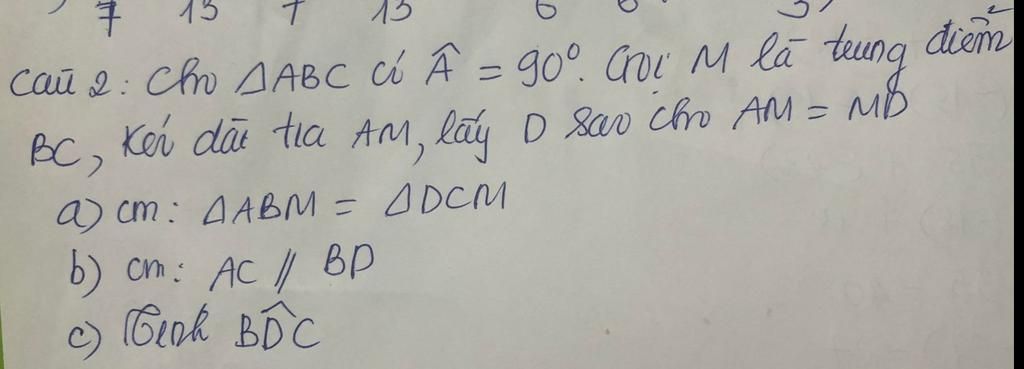 7 13 7 13 6 6 3
Câu 2: Cho ΔABC có Â = 90°. Gọi M là trung điểm
BC, kéo dài tia AM, lấy D sao cho AM = MD
a) cm: ΔABM = ΔDCM
b) cm: AC // BD
c) Tính BD̂C